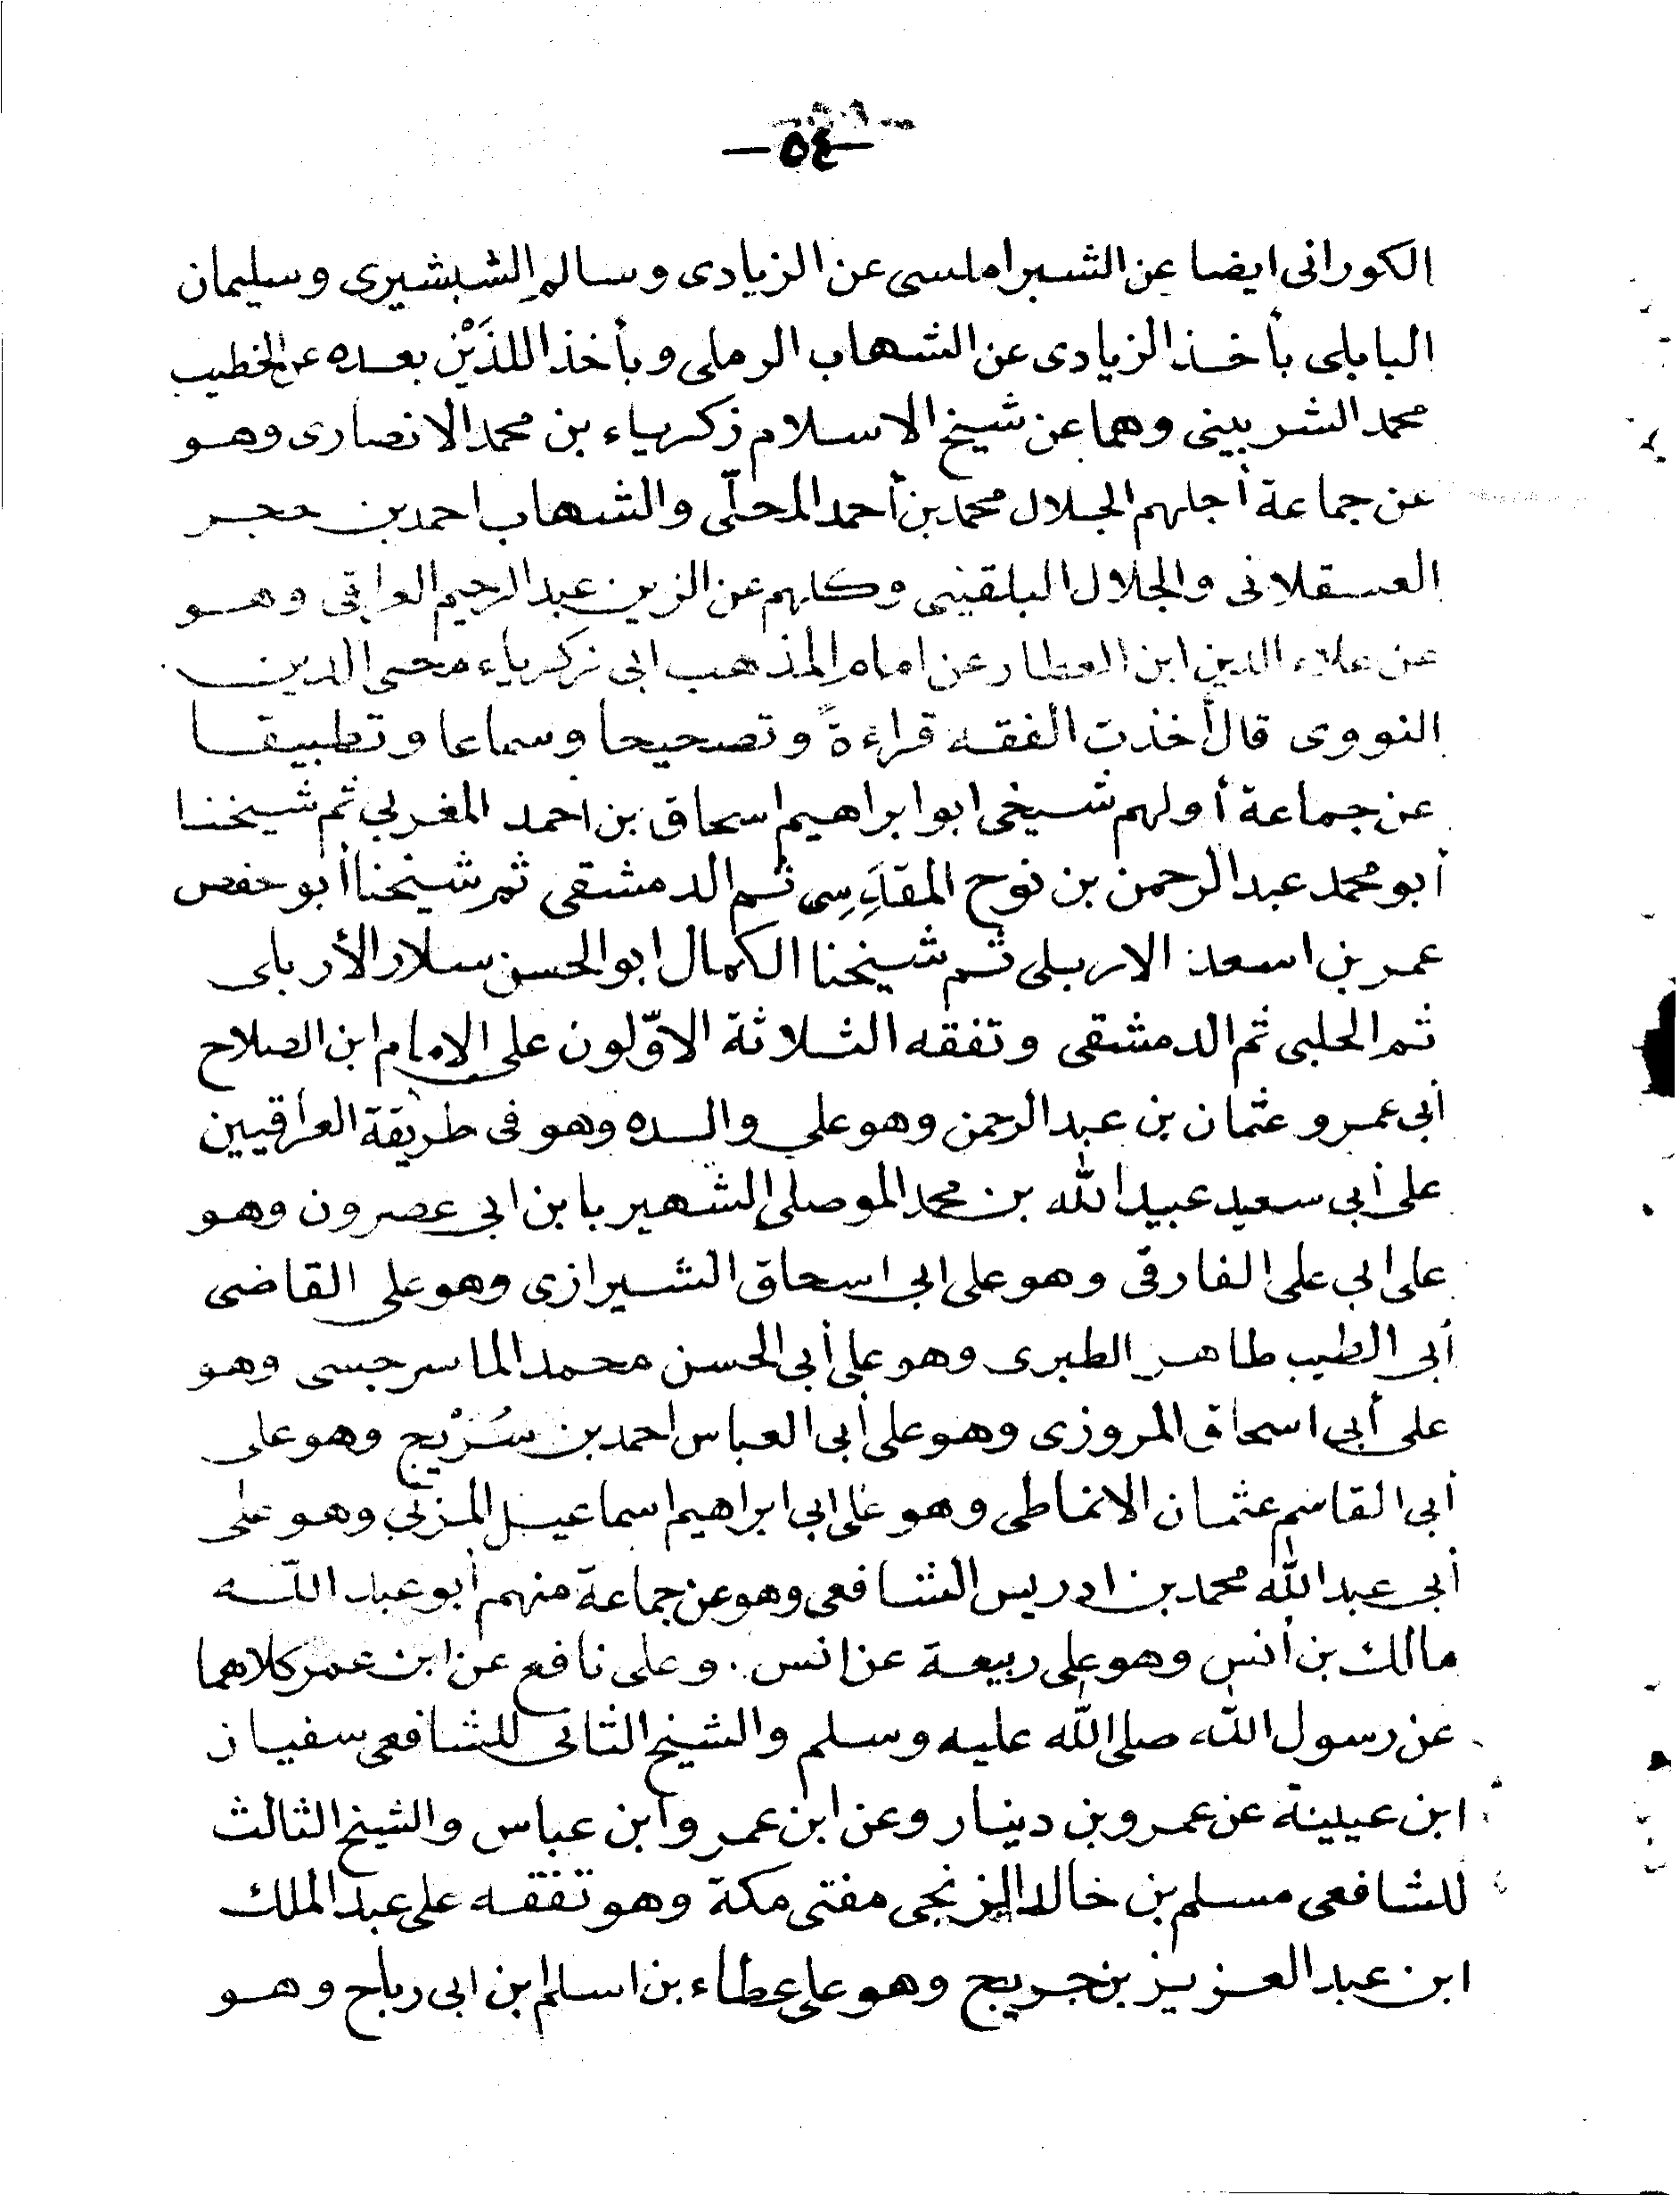 -٥٤-
الكورانى ايضا عن الشبراملسى عن الزيادى وسالم الشبشيرى وسليمان
البابلى بأخذ الزيادى عن الشهاب الرملى وبأخذ اللذَيْن بعده عن الخطيب
محمد الشربينى وهما عن شيخ الاسلام زكرياء بن محمد الانصارى وهو
عن جماعة أجلهم الجلال محمد بن أحمد المحلّى والشهاب احمد بن حجر
العسقلانى والجلال البلقينى وكلهم عن الزين عبد الرحيم العراقى وهو
عن علاء الدين ابن العطار عن امام المذهب ابى زكرياء محى الدين
النووى قال أخذت الفقه قراءةً وتصحيحا وسماعا وتطبيقا
عن جماعة أولهم شيخى ابو ابراهيم اسحاق بن احمد المغربى ثم شيخنا
أبو محمد عبد الرحمن بن نوح المقدِسِى ثم الدمشقى ثم شيخنا أبو حفص
عمر بن اسعد الاربلى ثم شيخنا الكمال ابو الحسن سلار الأربلى
ثم الحلبى ثم الدمشقى وتفقه الثلاثة الاوّلون على الامام ابن الصلاح
أبى عمرو عثمان بن عبد الرحمن وهو على والده وهو فى طريقة العراقيين
على أبى سعيد عبيد الله بن محمد الموصلى الشهير بابن ابى عصرون وهو
على ابى على الفارقى وهو على ابى اسحاق الشيرازى وهو على القاضى
أبى الطيب طاهر الطبرى وهو على أبى الحسن محمد الماسرجسى وهو
على أبى اسحاق المروزى وهو على أبى العباس احمد بن سُرَيْج وهو على
أبى القاسم عثمان الانماطى وهو على ابى ابراهيم اسماعيل المزنى وهو على
أبى عبد الله محمد بن ادريس الشافعى وهو عن جماعة منهم أبو عبد الله
مالك بن أنس وهو على ربيعة عن انس . وعلى نافع عن ابن عمر كلاهما
عن رسول الله صلى الله عليه وسلم والشيخ الثانى للشافعى سفيان
ابن عيينة عن عمرو بن دينار وعن ابن عمر وابن عباس والشيخ الثالث
للشافعى مسلم بن خالد الزنجى مفتى مكة وهو تفقه على عبد الملك
ابن عبد العزيز بن جريج وهو على عطاء بن اسلم ابن ابى رباح وهو